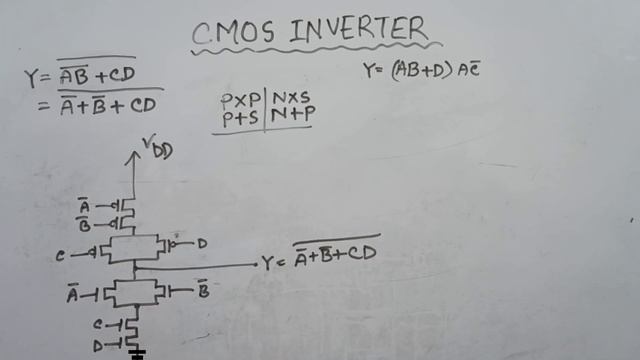 CMOS INVERTER
Y = \overline{\overline{AB} + CD}
= \overline{\overline{A} + \overline{B} + CD}
Y = (AB+D) A\overline{C}
P×P | N×S
P+S | N+P
V_{DD}
\overline{A}
\overline{B}
C
D
Y = \overline{\overline{A} + \overline{B} + CD}
\overline{A}
\overline{B}
C
D